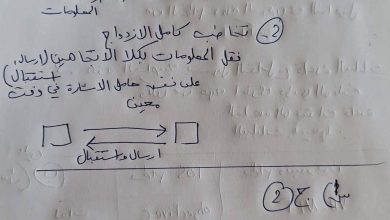 المعلومات
2- اتجاهيه كامل الازدواج
نقل المعلومات بكلا الاتجاهين (ارسال،
استقبال)
على نفس حامل الاشارة في وقت
معين
ارسال واستقبال
2